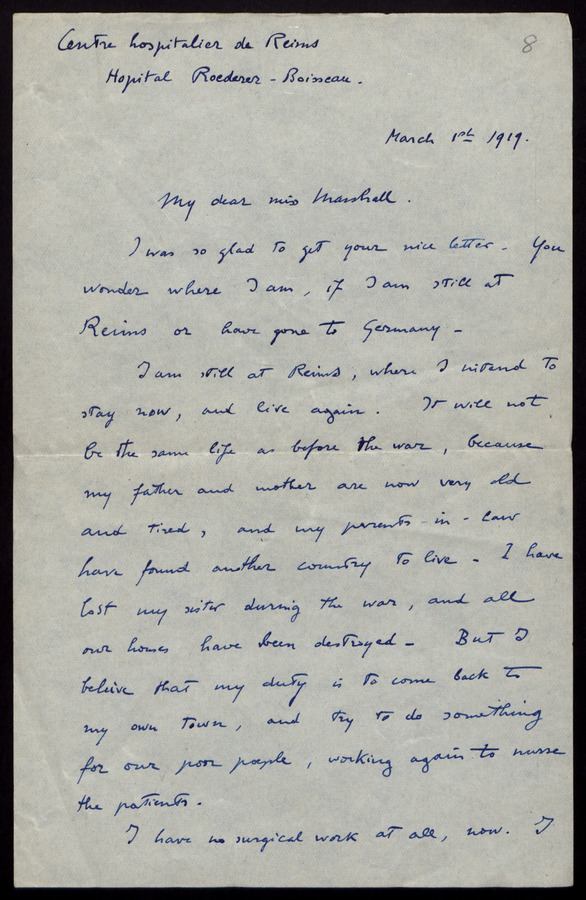 Centre hospitalier de Reims
8
Hopital Roederer - Boisseau.
March 1st 1919.
My dear miss Marshall.
I was so glad to get your nice letter - You
wonder where I am, if I am still at
Reims or have gone to Germany -
I am still at Reims, where I intend to
stay now, and live again. It will not
be the same life as before the war, because
my father and mother are now very old
and tired, and my parents-in-law
have found another country to live - I have
lost my sister during the war, and all
our houses have been destroyed - But I
beleive that my duty is to come back to
my own town, and try to do something
for our poor people, working again to nurse
the patients -
I have no surgical work at all, now. I